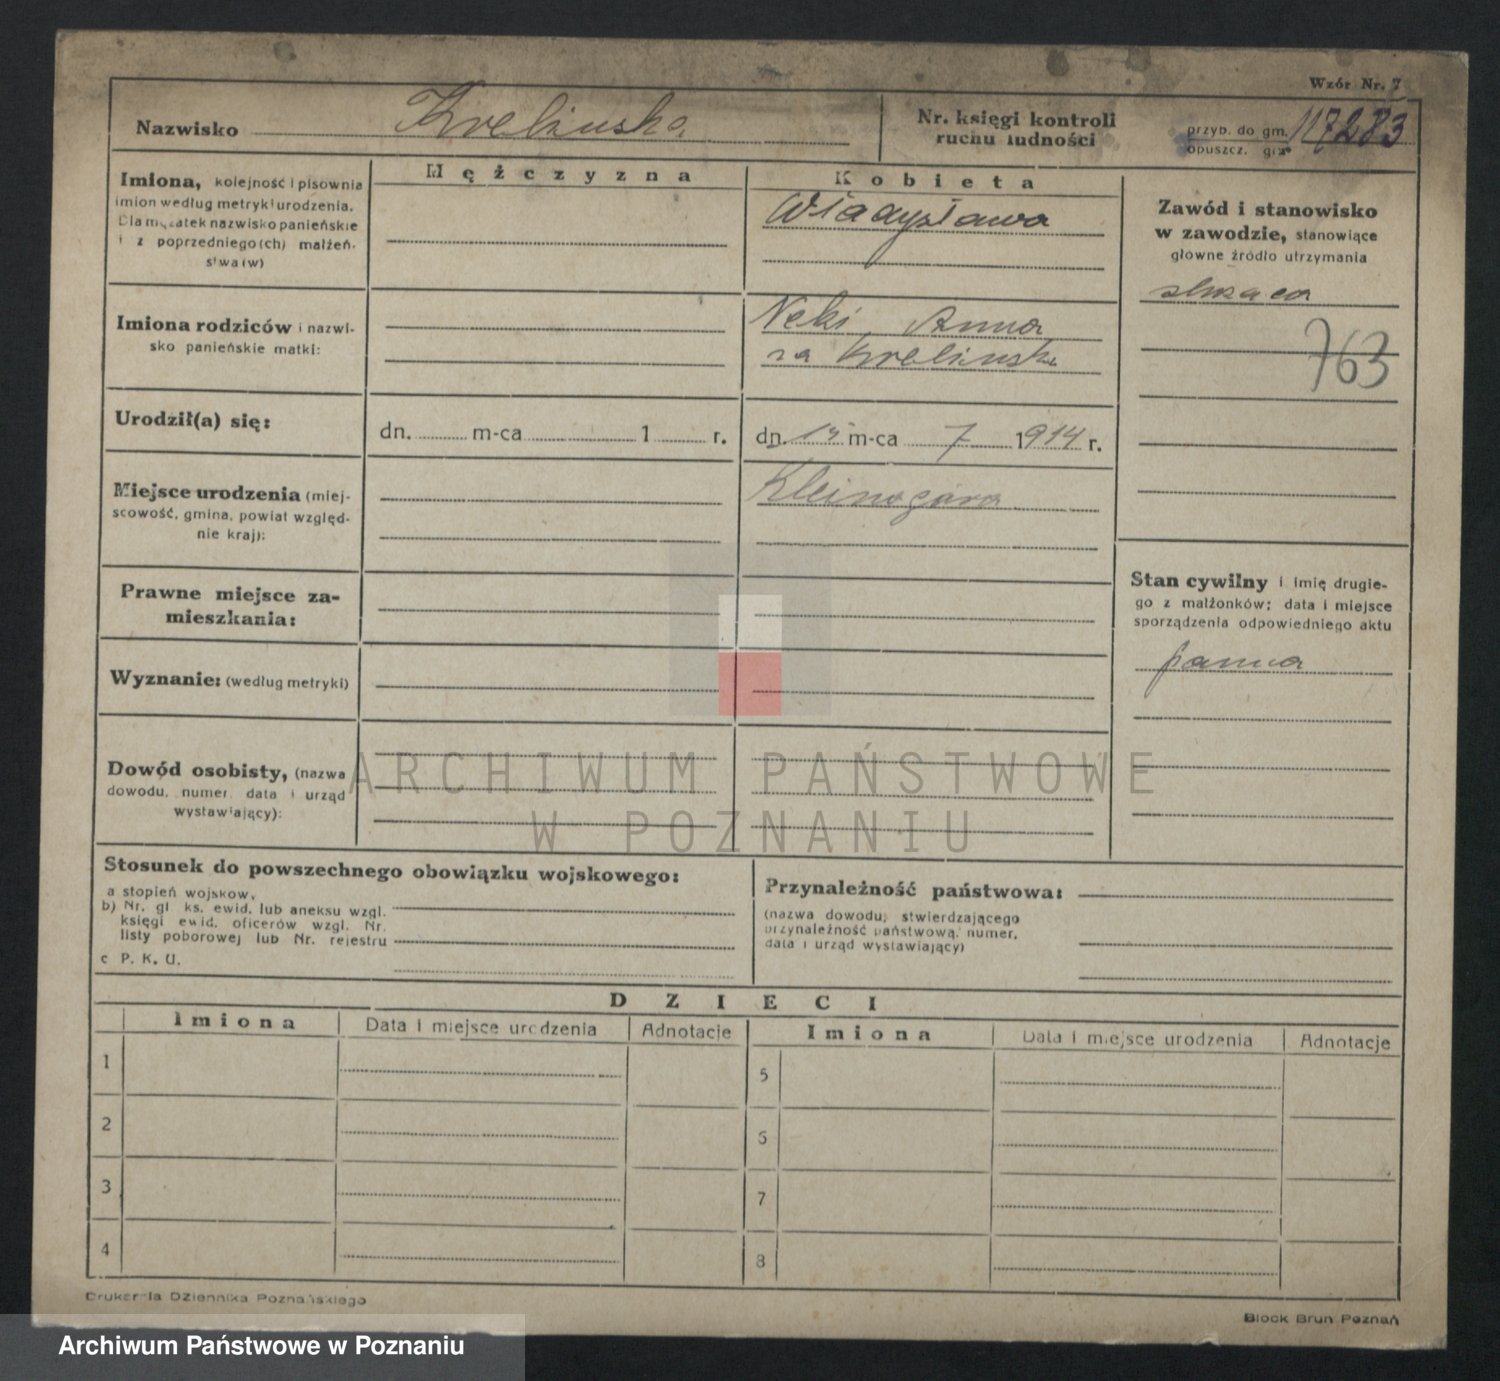 Wzór Nr. 7
Nazwisko Krelinska
Nr. księgi kontroli
ruchu ludności
przyb. do gm. 117283
opuszcz. gm.
Imiona, kolejność i pisownia
imion według metryki urodzenia.
Dla mężatek nazwisko panieńskie
i z poprzedniego(ch) małżeń-
stwa(w)
Mężczyzna
Kobieta
Władysława
Zawód i stanowisko
w zawodzie, stanowiące
główne źródło utrzymania
służąca
763
Imiona rodziców i nazwi-
sko panieńskie matki:
Anna
Krelinska
Urodził(a) się:
dn. m-ca 1 r.
dn. 15 m-ca 7 1914 r.
Miejsce urodzenia (miej-
scowość, gmina, powiat względ-
nie kraj):
Prawne miejsce za-
mieszkania:
Stan cywilny i imię drugie-
go z małżonków; data i miejsce
sporządzenia odpowiedniego aktu
panna
Wyznanie: (według metryki)
Dowód osobisty, (nazwa
dowodu, numer, data i urząd
wystawiający):
ARCHIWUM PAŃSTWOWE
W POZNANIU
Stosunek do powszechnego obowiązku wojskowego:
a stopień wojskow,
b) Nr. gł ks. ewid. lub aneksu wzgl.
księgi ewid. oficerów wzgl. Nr.
listy poborowej lub Nr. rejestru
c P. K. U.
Przynależność państwowa:
(nazwa dowodu, stwierdzającego
przynależność państwową, numer,
data i urząd wystawiający)
DZIECI
Imiona Data i miejsce urodzenia Adnotacje Imiona Data i miejsce urodzenia Adnotacje
1 5
2 6
3 7
4 8
Drukarnia Dziennika Poznańskiego
Block Brun Poznań
Archiwum Państwowe w Poznaniu